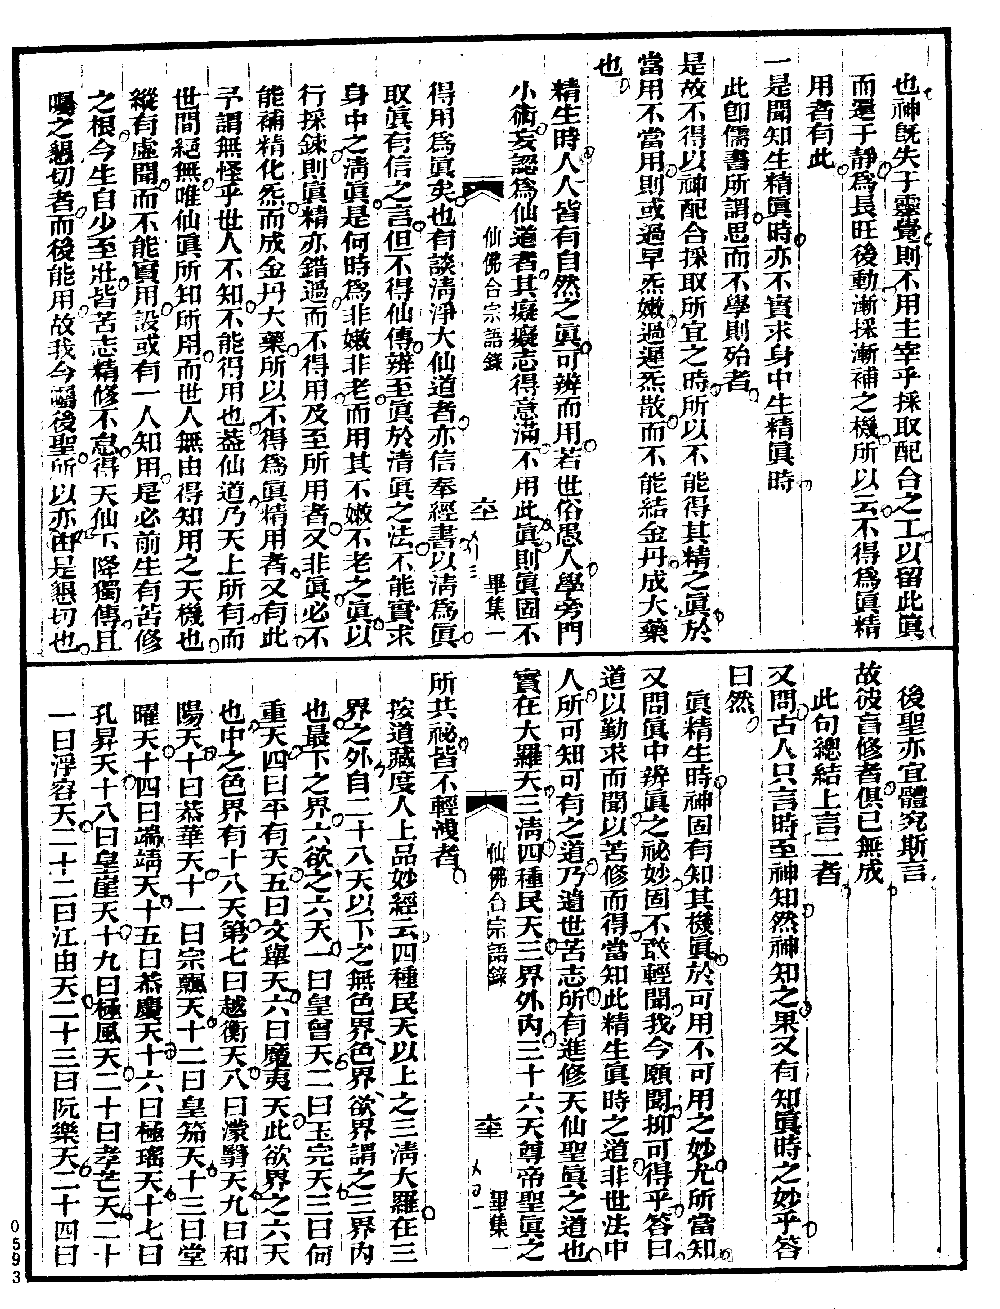 也神旣失于靈覺則不用主宰乎採取配合之工以留此眞
而還于靜爲長旺後動漸採漸補之機所以云不得爲眞精
用者有此
一是聞知生精眞時亦不實求身中生精眞時
此卽儒書所謂思而不學則殆者
是故不得以神配合採取所宜之時所以不能得其精之眞於
當用不當用則或過早炁嫩過遲炁散而不能結金丹成大藥
也
精生時人人皆有自然之眞可辨而用若世俗愚人學旁門
小術妄認爲仙道者其癡癡志得意滿不用此眞則眞固不
仙佛合宗語錄
畢集一
得用爲眞矣也有談淸淨大仙道者亦信奉經書以淸爲眞
取眞有信之言但不得仙傳辨至眞於淸眞之法不能實求
身中之淸眞是何時爲非嫩非老而用其不嫩不老之眞以
行採鍊則眞精亦錯過而不得用及至所用者又非眞必不
能補精化炁而成金丹大藥所以不得爲眞精用者又有此
予謂無怪乎世人不知不能得用也葢仙道乃天上所有而
世間絕無唯仙眞所知所用而世人無由得知用之天機也
縱有虛聞而不能實用設或有一人知用是必前生有苦修
之根今生自少至壯皆苦志精修不怠得天仙下降獨傳且
囑之懇切者而後能用故我今囑後聖所以亦由是懇切也
後聖亦宜體究斯言
故彼盲修者俱已無成
此句總結上言二者
又問古人只言時至神知然神知之果又有知眞時之妙乎答
曰然
眞精生時神固有知其機眞於可用不可用之妙尤所當知
又問眞中辨眞之祕妙固不敢輕聞我今願聞抑可得乎答曰
道以勤求而聞以苦修而得當知此精生眞時之道非世法中
人所可知可有之道乃遺世苦志所有進修天仙聖眞之道也
實在大羅天三淸四種民天三界外內三十六天尊帝聖眞之
仙佛合宗語錄
畢集一
所共祕皆不輕洩者
按道藏度人上品妙經云四種民天以上之三淸大羅在三
界之外自二十八天以下之無色界色界欲界謂之三界內
也最下之界六欲之六天一曰皇曾天二曰玉完天三曰何
重天四曰平育天五曰文舉天六曰魔夷天此欲界之六天
也中之色界有十八天第七曰越衡天八曰濛翳天九曰和
陽天十曰恭華天十一曰宗飄天十二曰皇笳天十三曰堂
曜天十四曰端靖天十五曰恭慶天十六曰極瑤天十七曰
孔昇天十八曰皇崖天十九曰極風天二十曰孝芒天二十
一曰浮容天二十二曰江由天二十三曰阮樂天二十四曰
0593